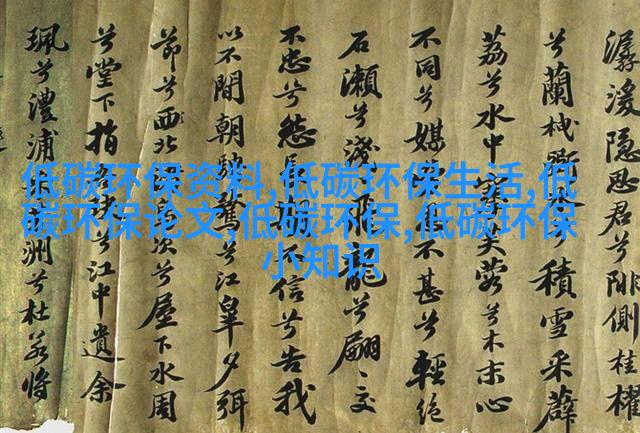 潺湲隱思君兮陫側桂櫂
兮蘭栧斲兮積雪采薜
荔兮水中搴芙蓉兮木末心
不同兮媒不甚兮輕絕
石瀨兮淺飛龍兮翩〻交
不忠兮怨長不信兮告我
以不閒朝騁騖兮江皋夕弭
節兮北次兮屋下水周
兮堂下兮江中遺余
珮兮澧浦洲兮杜若將
低碳环保资料,低碳环保生活,低
碳环保论文,低碳环保,低碳环保
小知识